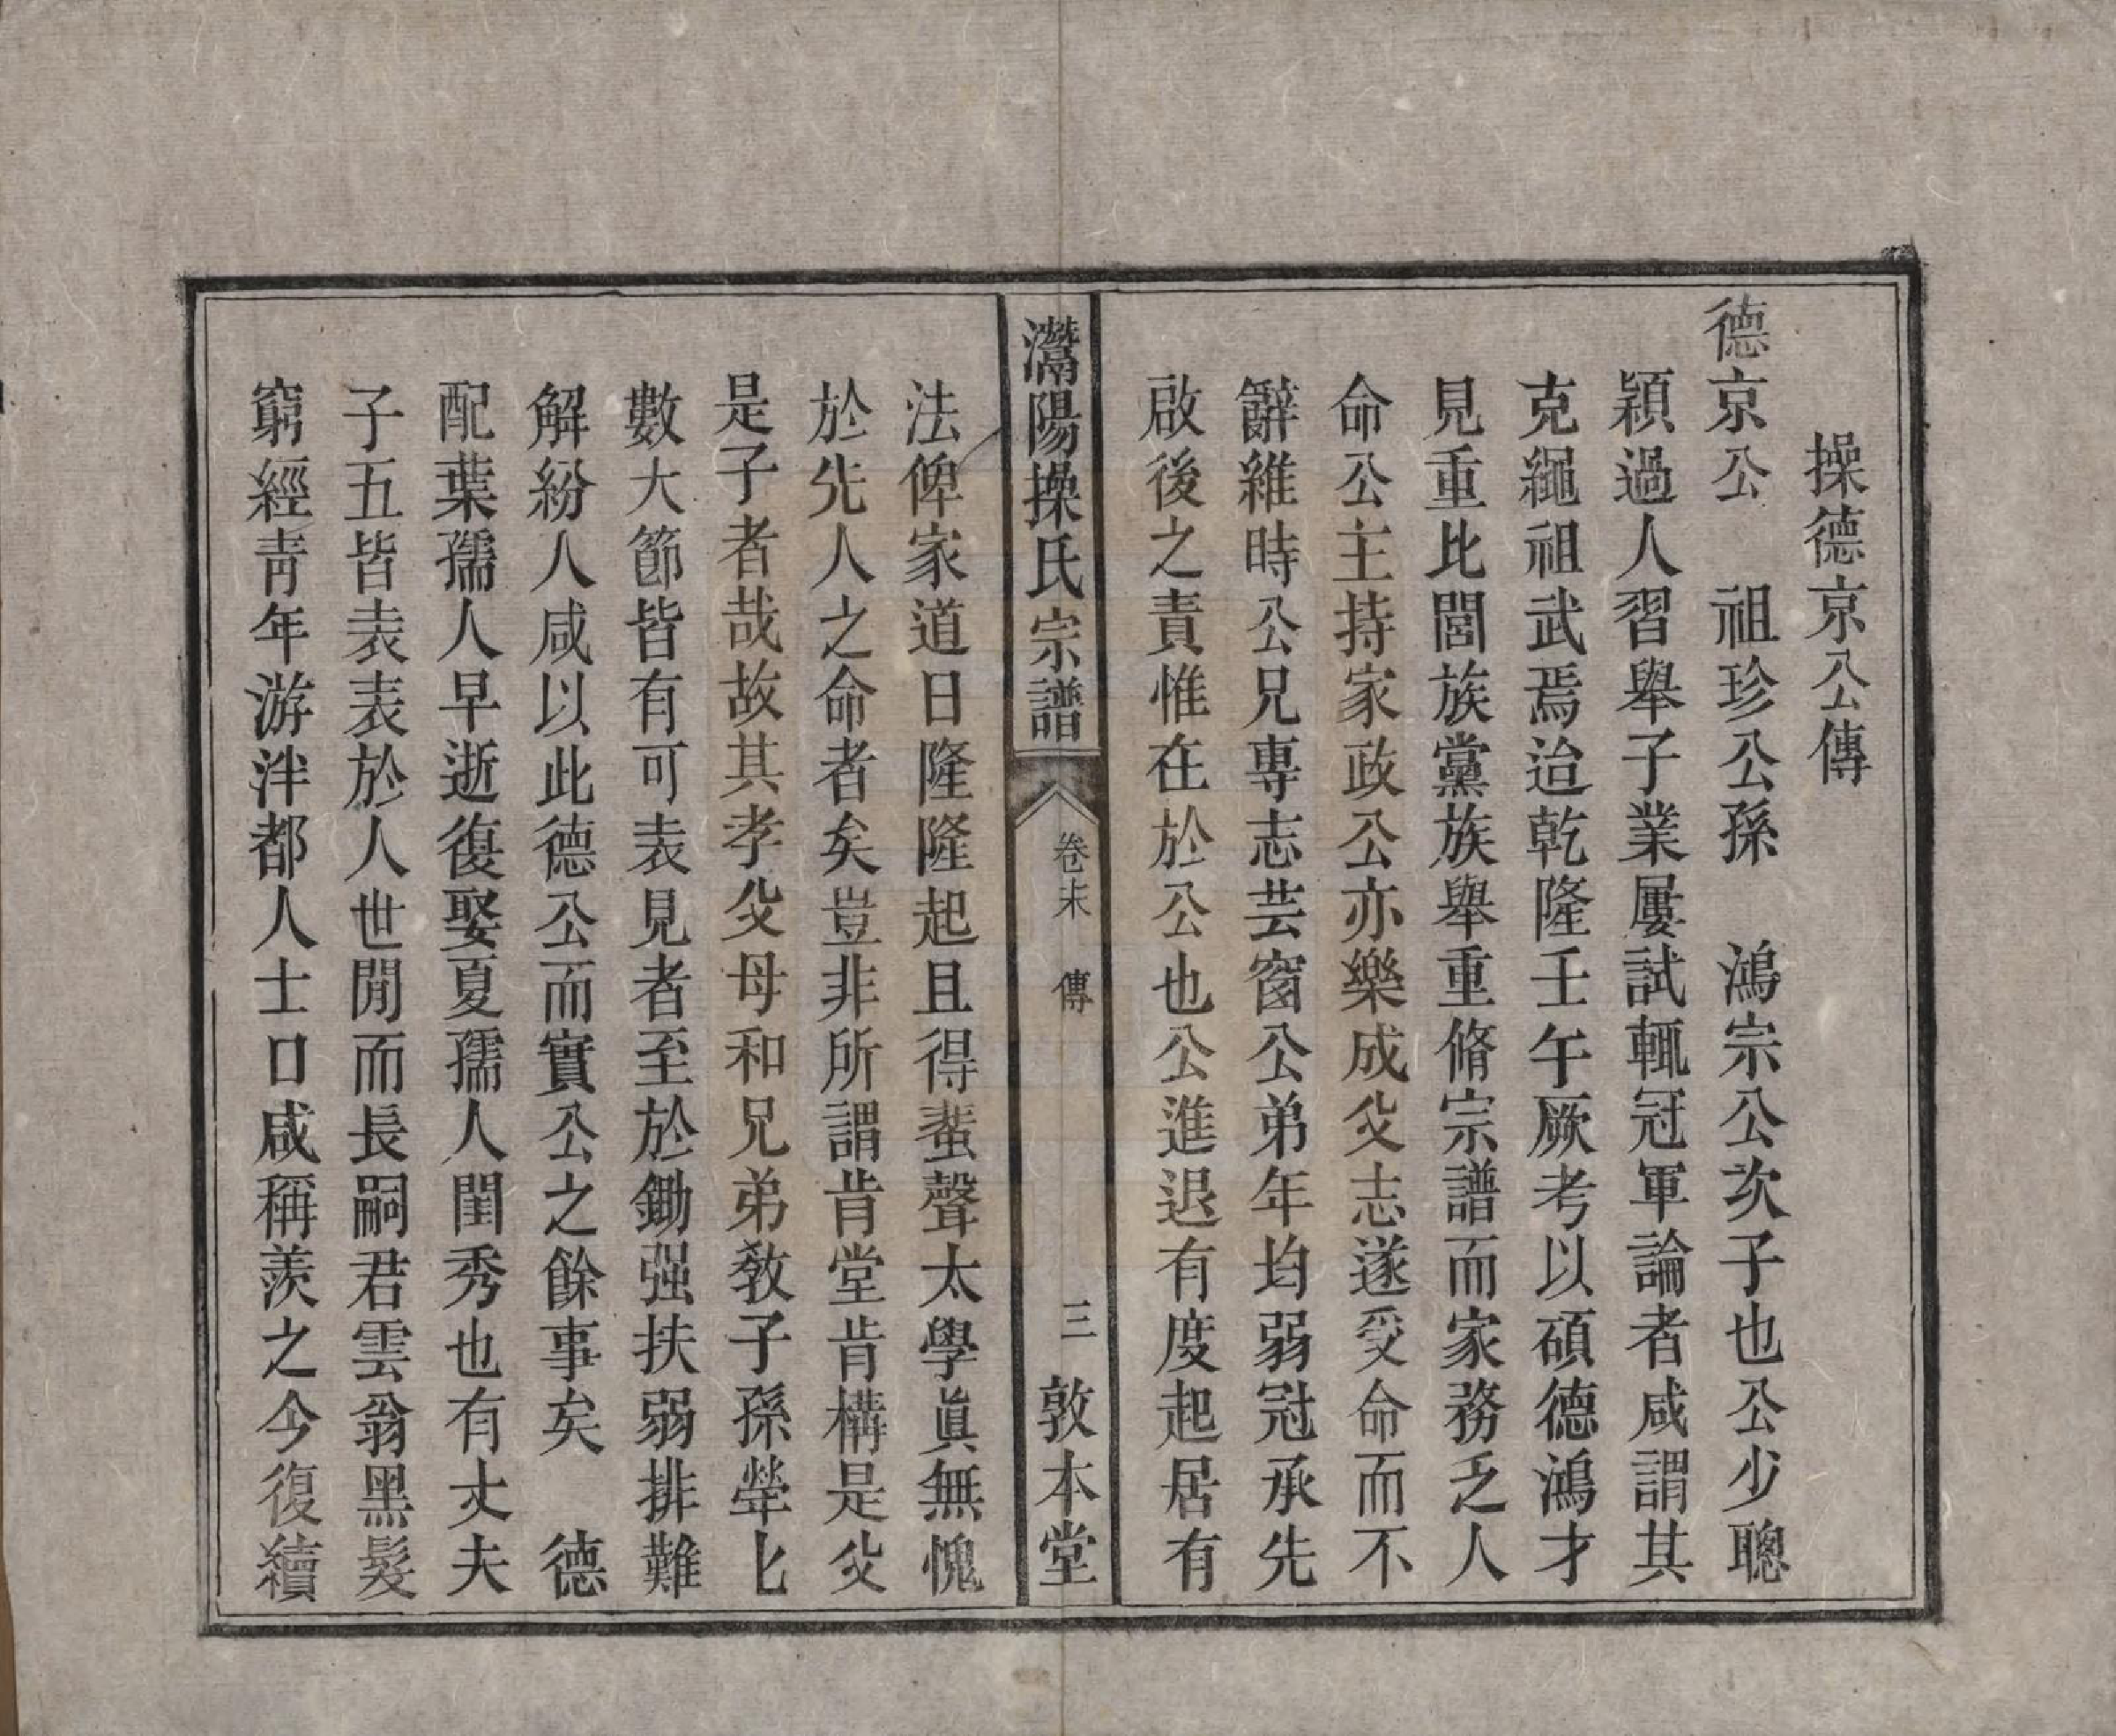 操德京公傳
德京公　祖珍公孫　鴻宗公次子也公少聰
穎過人習舉子業屢試輒冠軍論者咸謂其
克繩祖武焉迨乾隆壬午厥考以碩德鴻才
見重比閭族黨族舉重脩宗譜而家務乏人
命公主持家政公亦樂成父志遂受命而不
辭維時公兄專志芸窗公弟年均弱冠承先
啟後之責惟在於公也公進退有度起居有
灊陽操氏宗譜　卷末　傳　三　敦本堂
法俾家道日隆隆起且得蜚聲太學眞無愧
於先人之命者矣豈非所謂肯堂肯構是父
是子者哉故其孝父母和兄弟敎子孫犖匕
數大節皆有可表見者至於鋤强扶弱排難
解紛人咸以此德公而實公之餘事矣　德
配葉孺人早逝復娶夏孺人閨秀也有丈夫
子五皆表表於人世閒而長嗣君雲翁黑髮
窮經靑年游泮都人士口咸稱羨之今復續